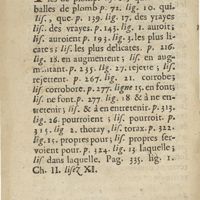 balles de plomb p. 72. lig. 10. qui.
lis. , que p. 139. lig. 17. des yrayes
lis. des vrayes. p. 143. lig. 1. auroit;
lis. auroient p. 193. lig. 3. les plus li-
cates; lis. les plus delicates. p. 216.
lig. 18. en augmentent; lis. en aug-
mentant. p. 235. lig. 27. rejette; lis.
rejettent. p. 267. lig. 21. corrobe;
lis corrobore. p. 277. ligne 15. en font;
lis. ne font. p. 277. lig. 18 & à ne en-
tretenir; lis. & à en entretenir. p. 313.
lig. 26. pourroient; lis. pourroit. p.
315. lig. 2. thoray, lis. torax. p. 322.
lig. 15. propres pour; lis. propres ser-
voient pour. p. 324. lig. 13. laquelle;
lis dans laquelle. Pag. 335. lig. 1.
Ch. II. lisez XI.